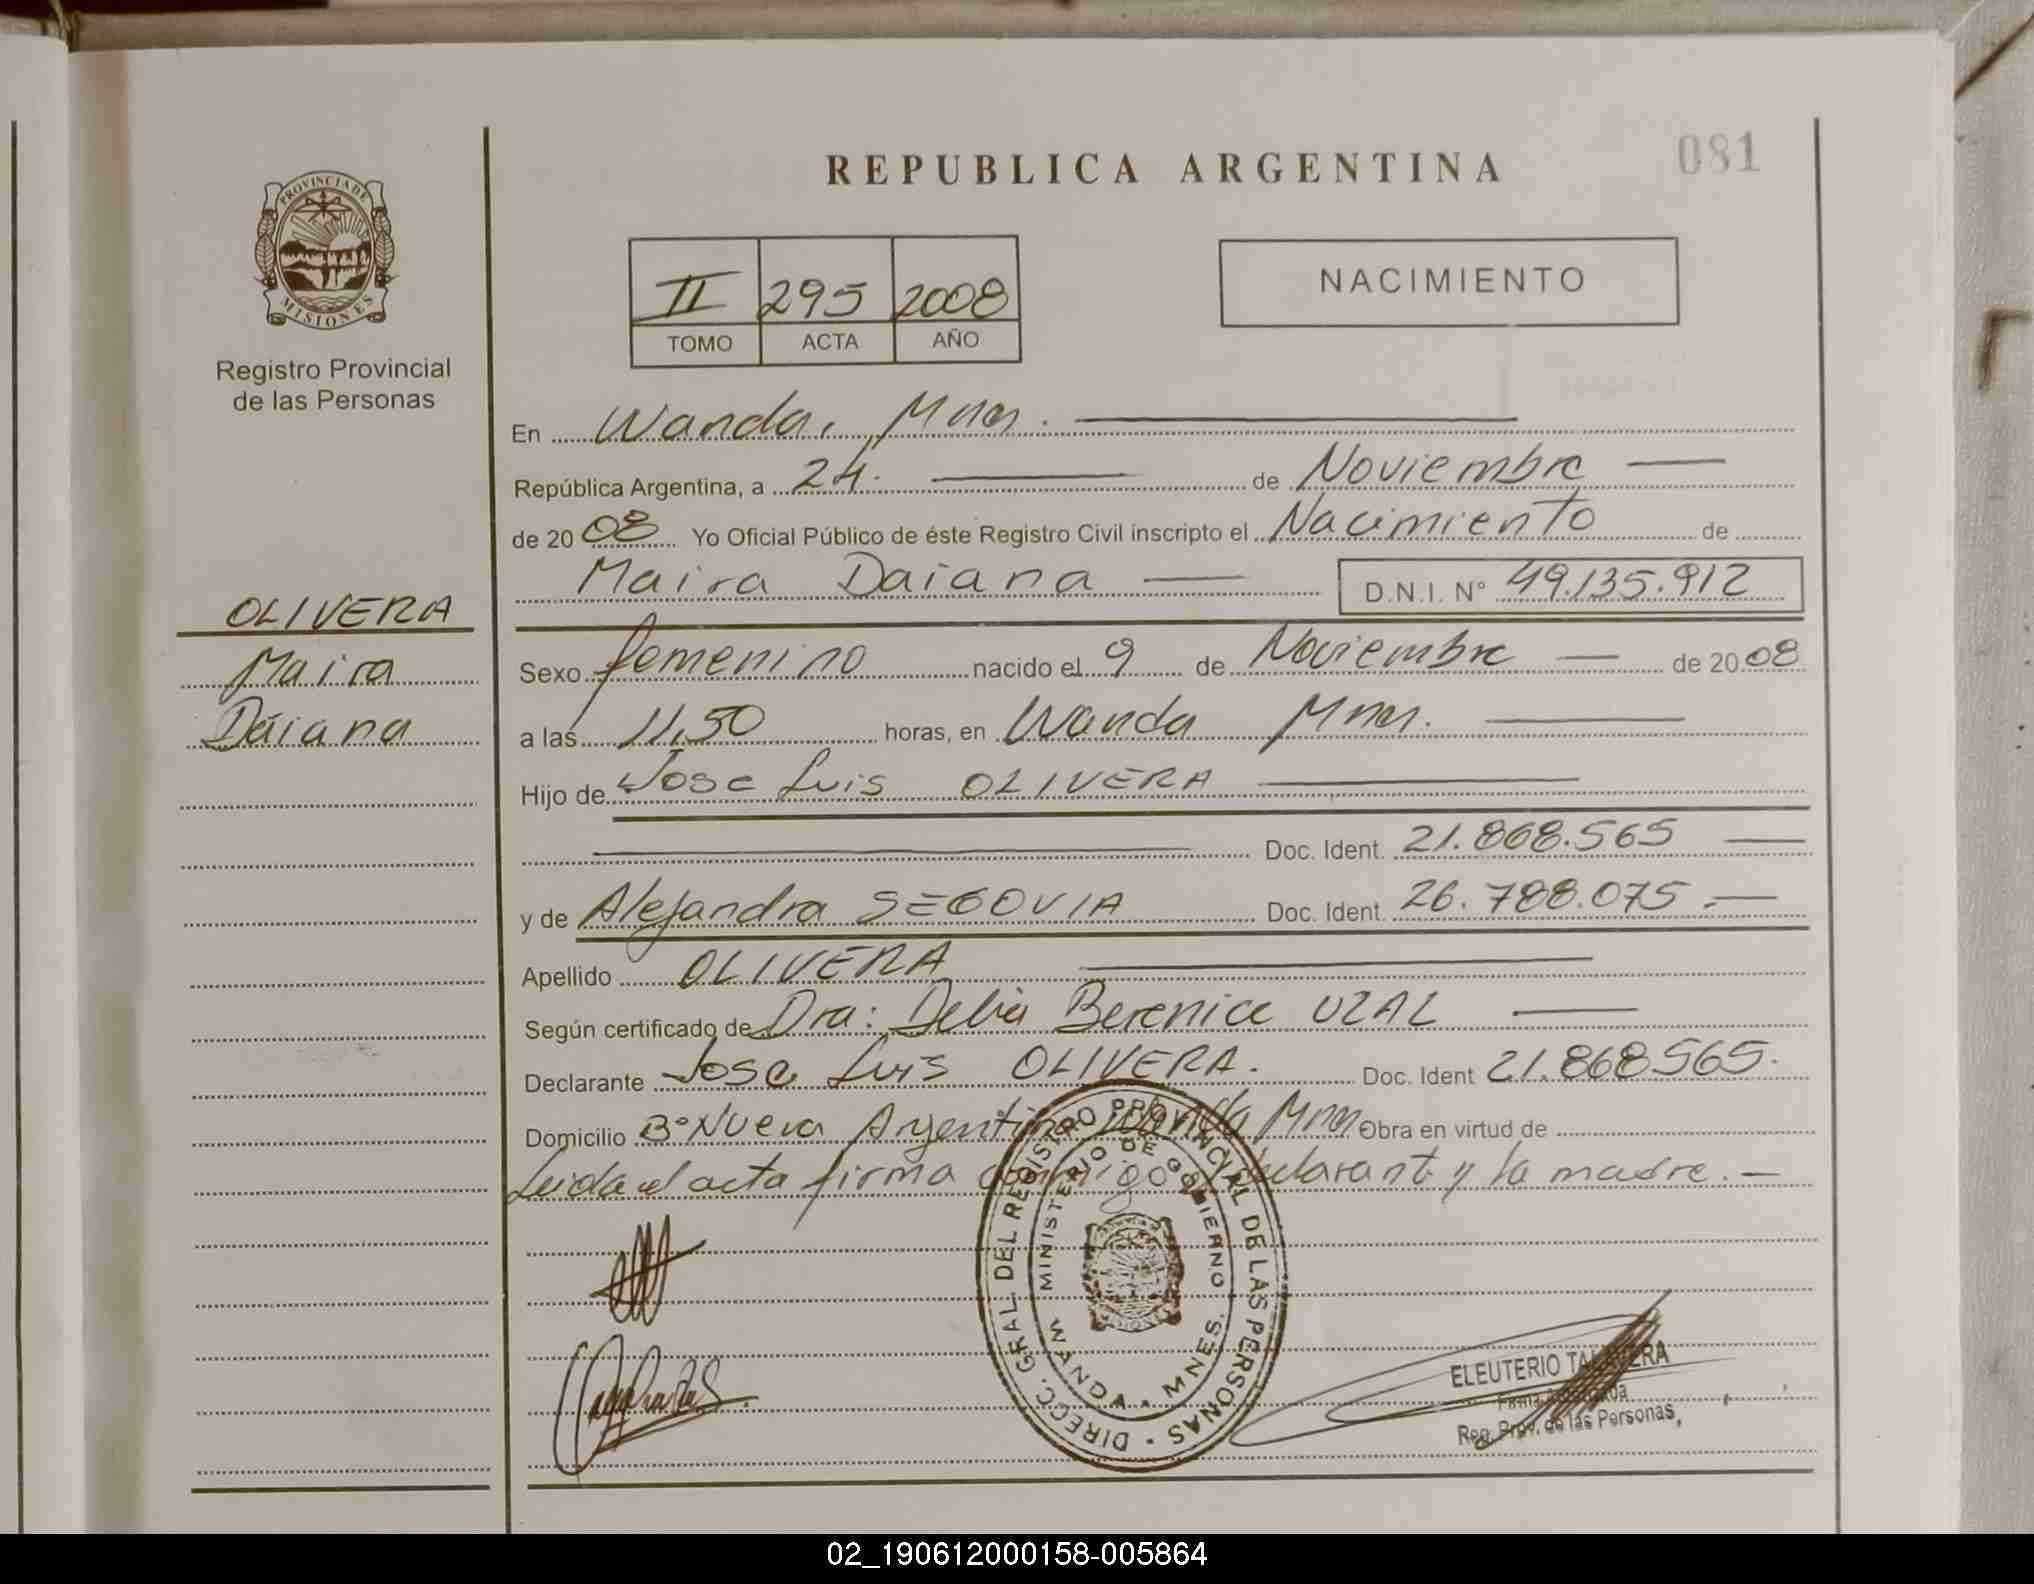 REPUBLICA ARGENTINA
081
PROVINCIA DE
MISIONES
Registro Provincial
de las Personas
II 295 2008
TOMO ACTA AÑO
NACIMIENTO
OLIVERA
Maira
Daiana
En Wanda, Mnes.
República Argentina, a 24. de Noviembre
de 2008 Yo Oficial Público de éste Registro Civil inscripto el Nacimiento de
Maira Daiana D.N.I. N° 49.135.912
Sexo femenino nacido el 9 de Noviembre de 2008
a las 11,50 horas, en Wanda Mnes.
Hijo de Jose Luis OLIVERA
Doc. Ident. 21.868.565
y de Alejandra SEGOVIA Doc. Ident. 26.788.075.
Apellido OLIVERA
Según certificado de Dra: Delia Berenice UZAL
Declarante Jose Luis OLIVERA. Doc. Ident 21.868565.
Domicilio B° Nueva Argentina Wanda Mnes Obra en virtud de
Leida el acta firma conmigo el declarant y la madre.-
DIRECC. GRAL. DEL REGISTRO PROVINCIAL DE LAS PERSONAS
MINISTERIO DE GOBIERNO
WANDA • MNES.
ELEUTERIO TALAVERA
Firma Autorizada
Reg. Prov. de las Personas,
02_190612000158-005864